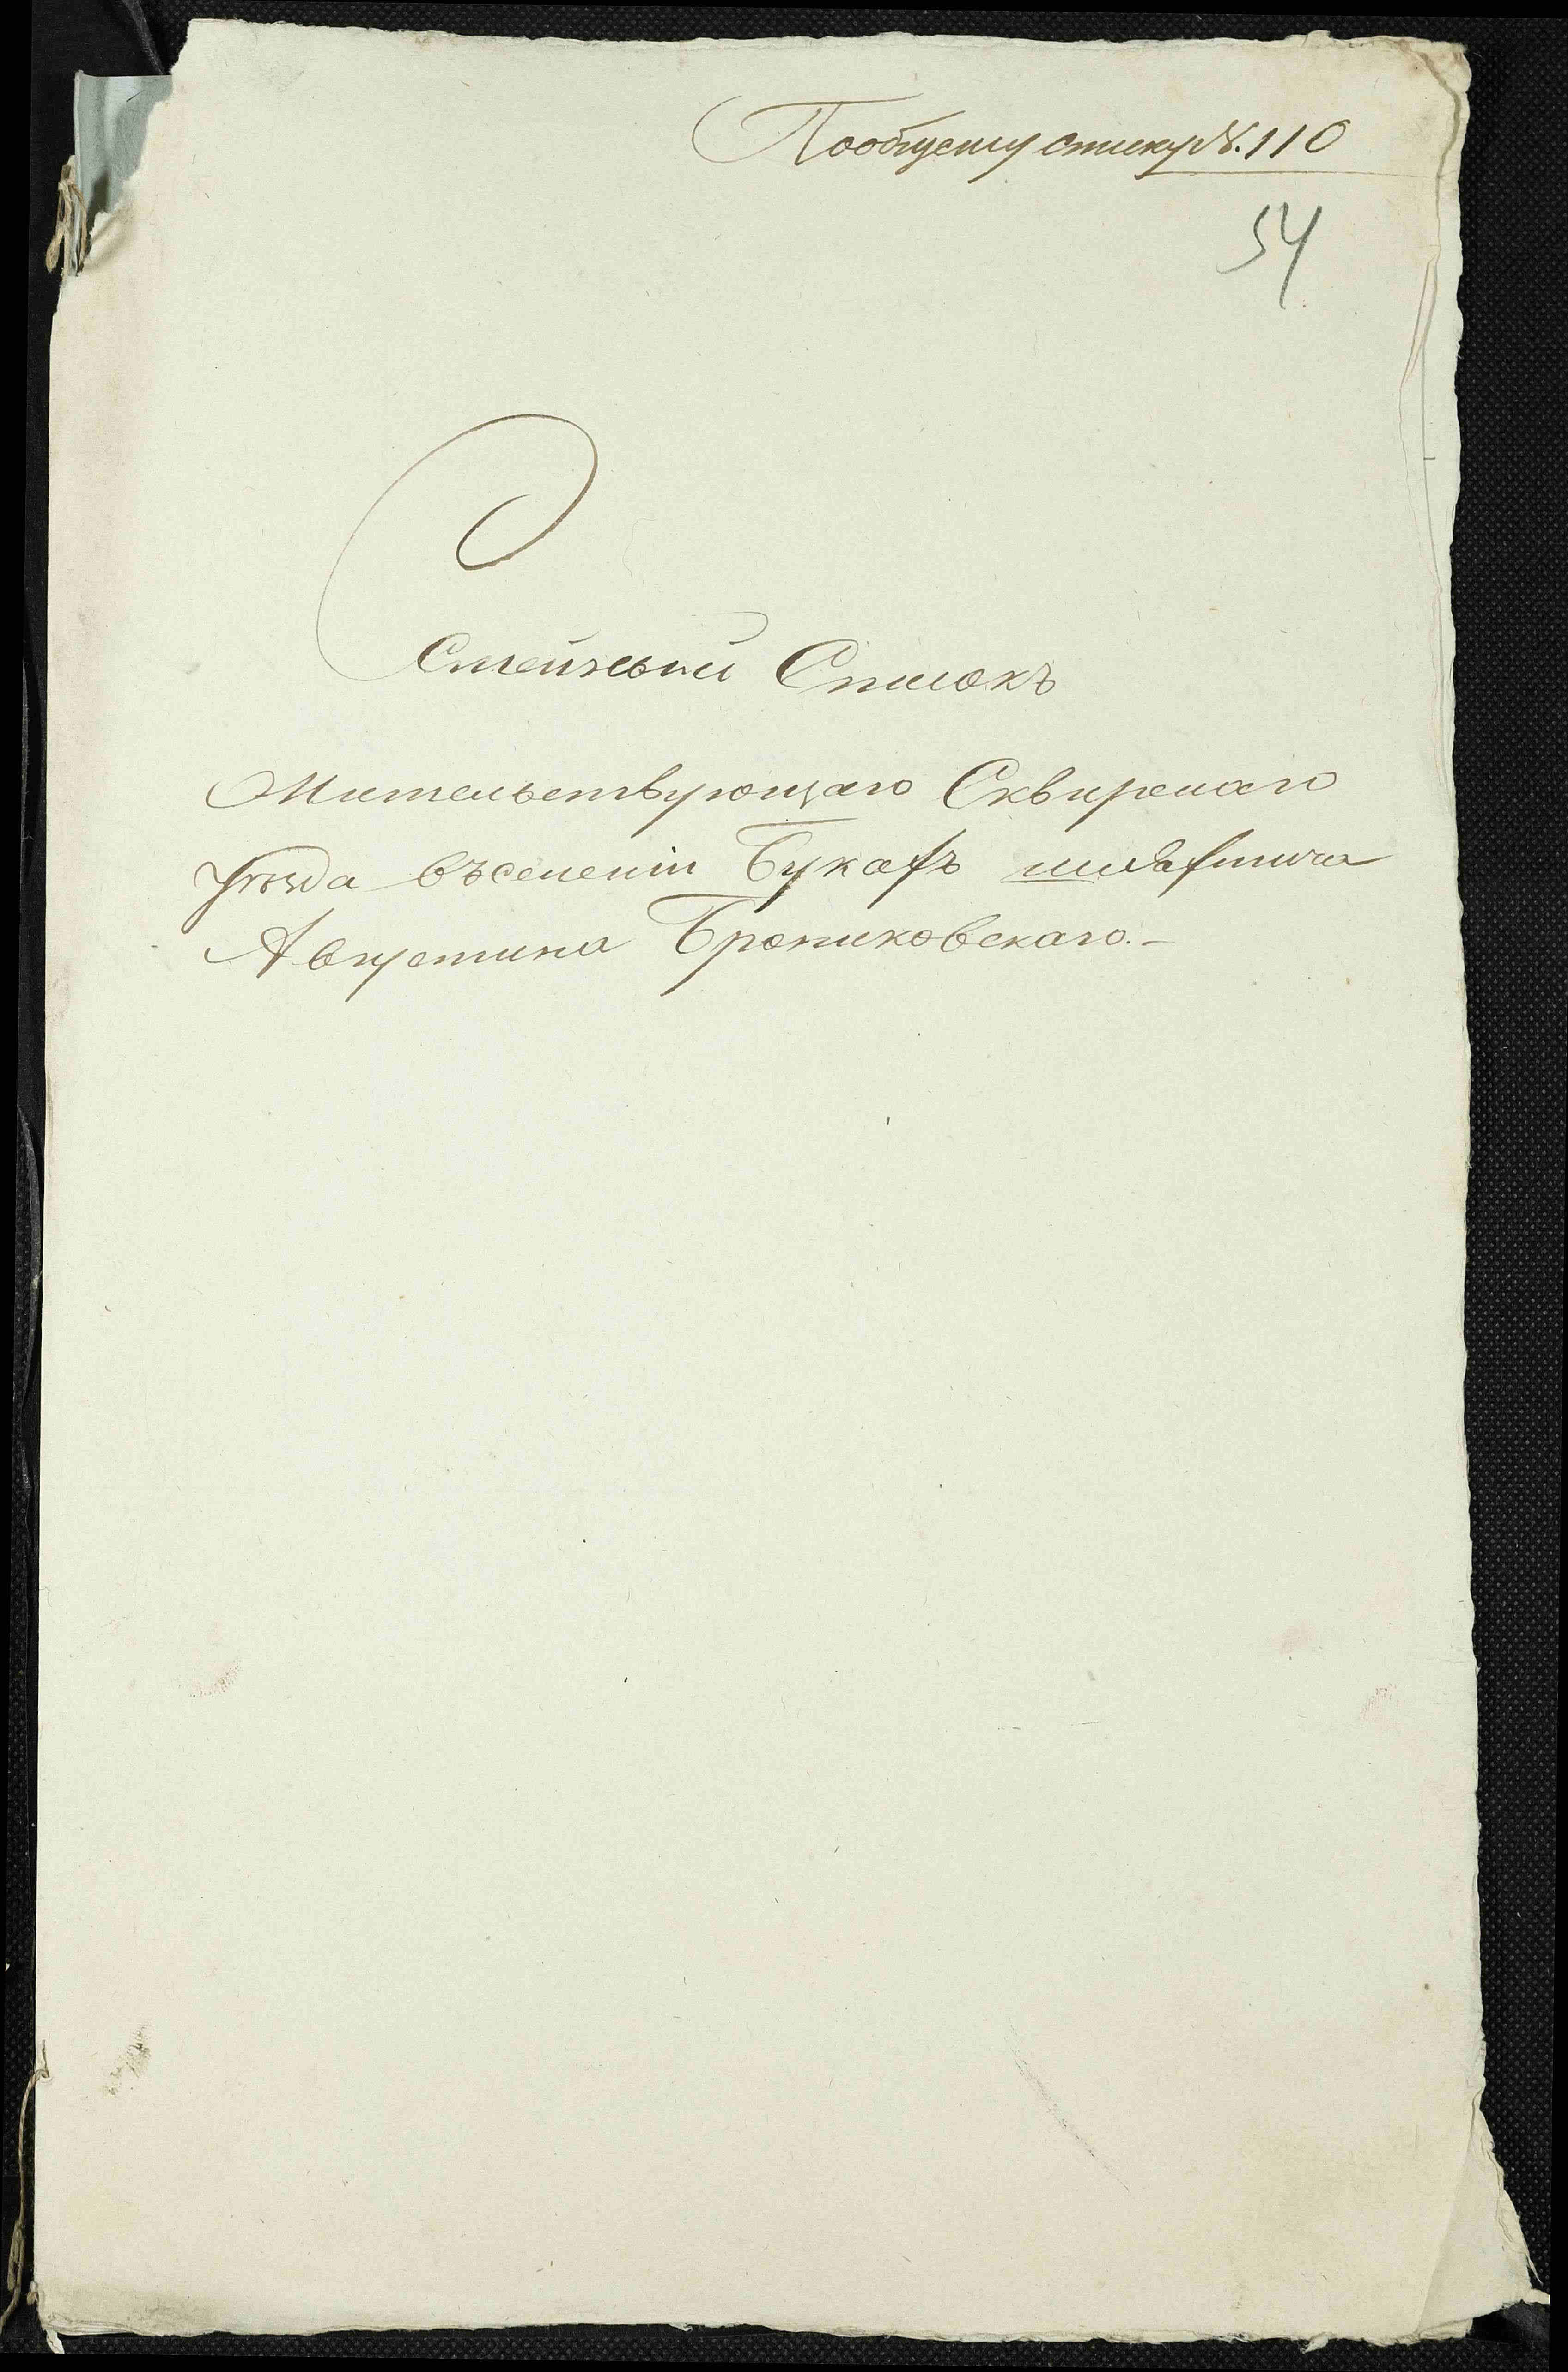 По общему списку №. 110
54
Семейный Списокъ
Жительствующаго Сквирскаго
Уѣзда въ селеніи Букахъ шляхтича
Августина Брониковскаго.-